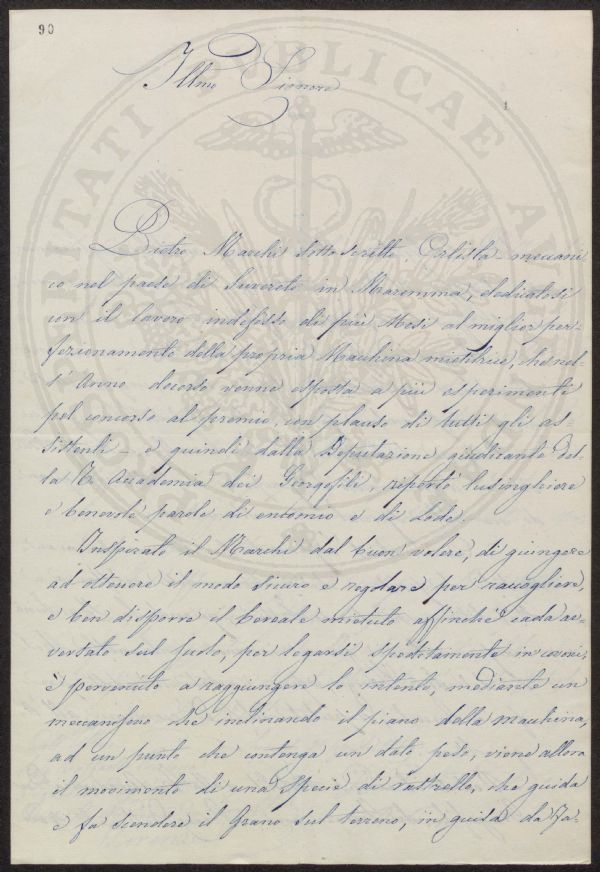 90
Illmo Signore
Pietro Marchi sottoscritto, Orlista meccani
co nel paese di Suvereto in Maremma, dedicatosi
con il lavoro indefesso di più Mesi al miglior per-
fezionamento della propria Macchina mietitrice, che nel-
l' Anno decorso venne esposta a più esperimenti
pel concorso al premio, con plauso di tutti gli as-
sistenti – e quindi dalla Deputazione giudicante del-
la R. Accademia dei Georgofili, riportò lusinghiere
e benevole parole di encomio e di Lode.
Inspirato il Marchi dal buon volere, di giungere
ad ottenere il modo sicuro e regolare per raccogliere,
e ben disporre il Cereale mietuto affinchè cada ro-
versato sul suolo, per legarsi speditamente in covoni,
è pervenuto a raggiungere lo intento, mediante un
meccanismo che inclinando il piano della macchina,
ad un punto che contenga un dato peso, viene allora
il movimento di una specie di rastrello, che guida
e fa scendere il Grano sul terreno, in guisa da
RITATI PUBLICAE AU